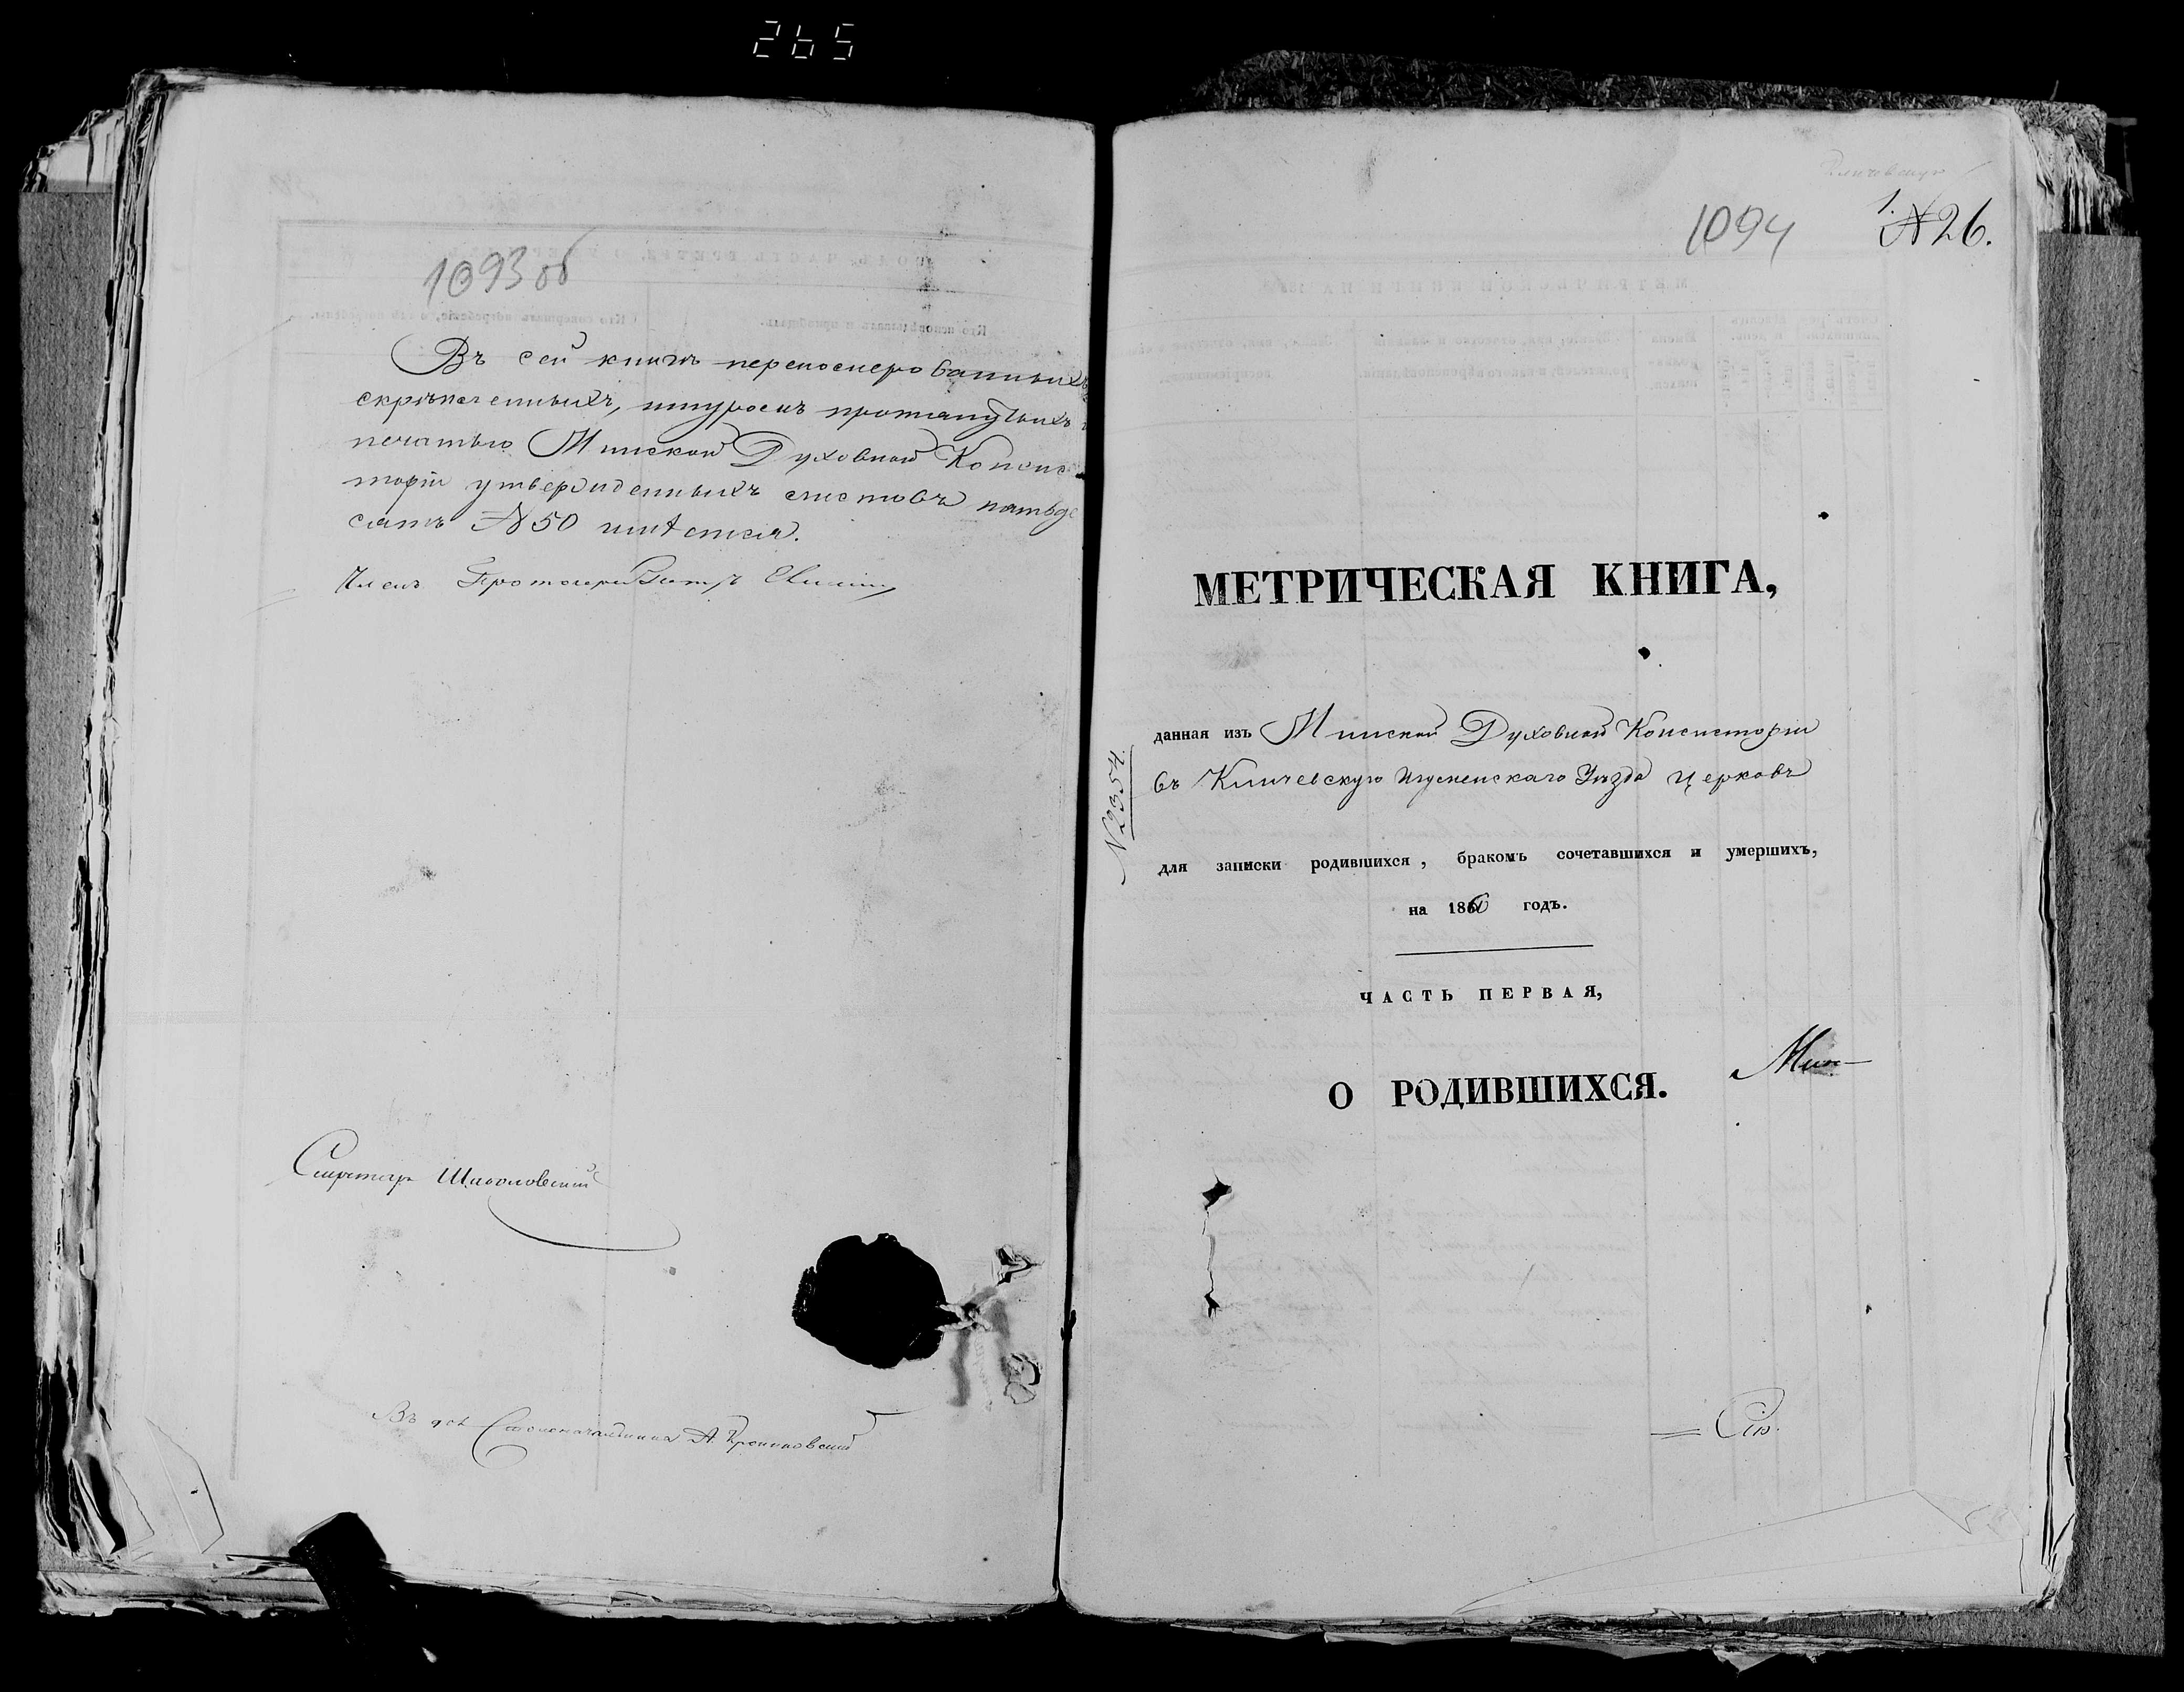 265
1093 об
Въ сей книгѣ перенумерованныхъ
скрѣпленныхъ, шнуромъ протянутыхъ и
печатью Минской Духовной Консис
торіи утвержденныхъ листовъ пятьде
сятъ № 50 имѣется.
Членъ Протоіерей
Секретарь
Столоначальника А.
Кличевскую
1094
1. № 26.
МЕТРИЧЕСКАЯ КНИГА,
данная изъ Минской Духовной Консисторіи
въ Кличевскую Игуменскаго Уѣзда церковь
№ 2354.
для записки родившихся, бракомъ сочетавшихся и умершихъ,
на 1860 годъ.
ЧАСТЬ ПЕРВАЯ,
О РОДИВШИХСЯ.